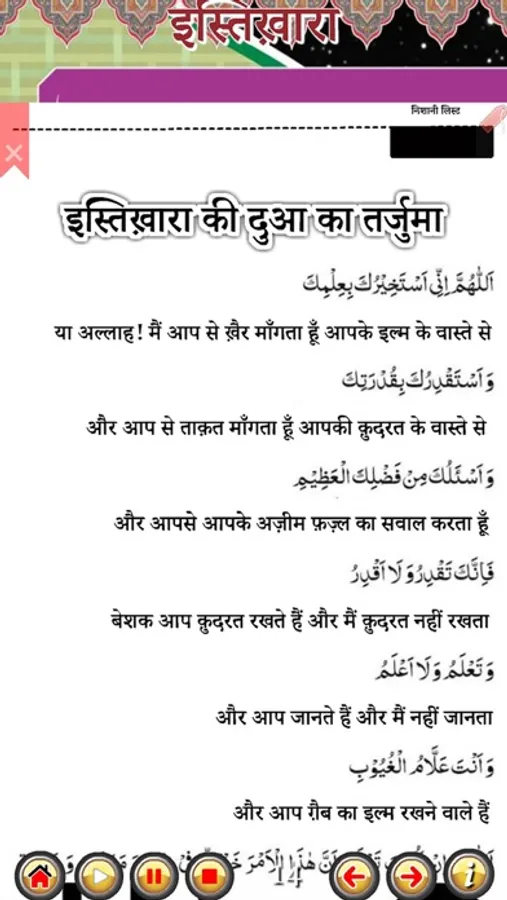 इस्तिख़ारा
निशानी लिस्ट
इस्तिख़ारा की दुआ का तर्जुमा
اَللّٰهُمَّ اِنِّىْ اَسْتَخِيْرُكَ بِعِلْمِكَ
या अल्लाह! मैं आप से ख़ैर माँगता हूँ आपके इल्म के वास्ते से
وَ اَسْتَقْدِرُكَ بِقُدْرَتِكَ
और आप से ताक़त माँगता हूँ आपकी क़ुदरत के वास्ते से
وَ اَسْئَلُكَ مِنْ فَضْلِكَ الْعَظِيْمِ
और आपसे आपके अज़ीम फ़ज़्ल का सवाल करता हूँ
فَاِنَّكَ تَقْدِرُ وَ لَا اَقْدِرُ
बेशक आप क़ुदरत रखते हैं और मैं क़ुदरत नहीं रखता
وَ تَعْلَمُ وَ لَا اَعْلَمُ
और आप जानते हैं और मैं नहीं जानता
وَ اَنْتَ عَلَّامُ الْغُيُوْبِ
और आप ग़ैब का इल्म रखने वाले हैं
هٰذَا الْاَمْرَ
14